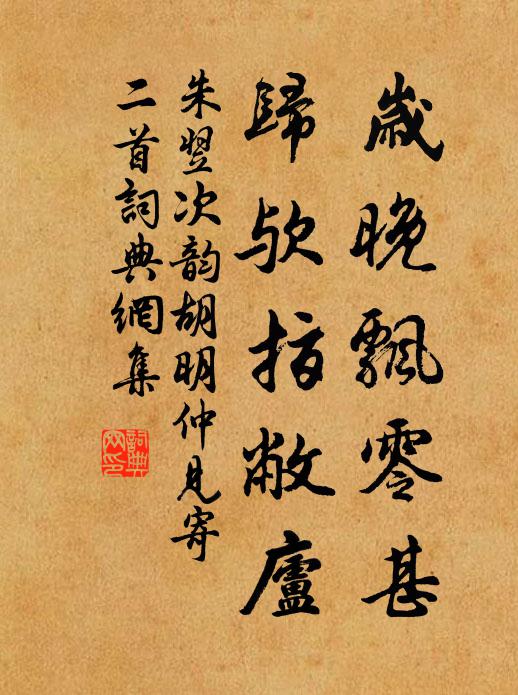 歲晚飄零甚
歸欤指敝廬
朱翌次韵胡明仲見寄
二首詞典網集
詞典网印